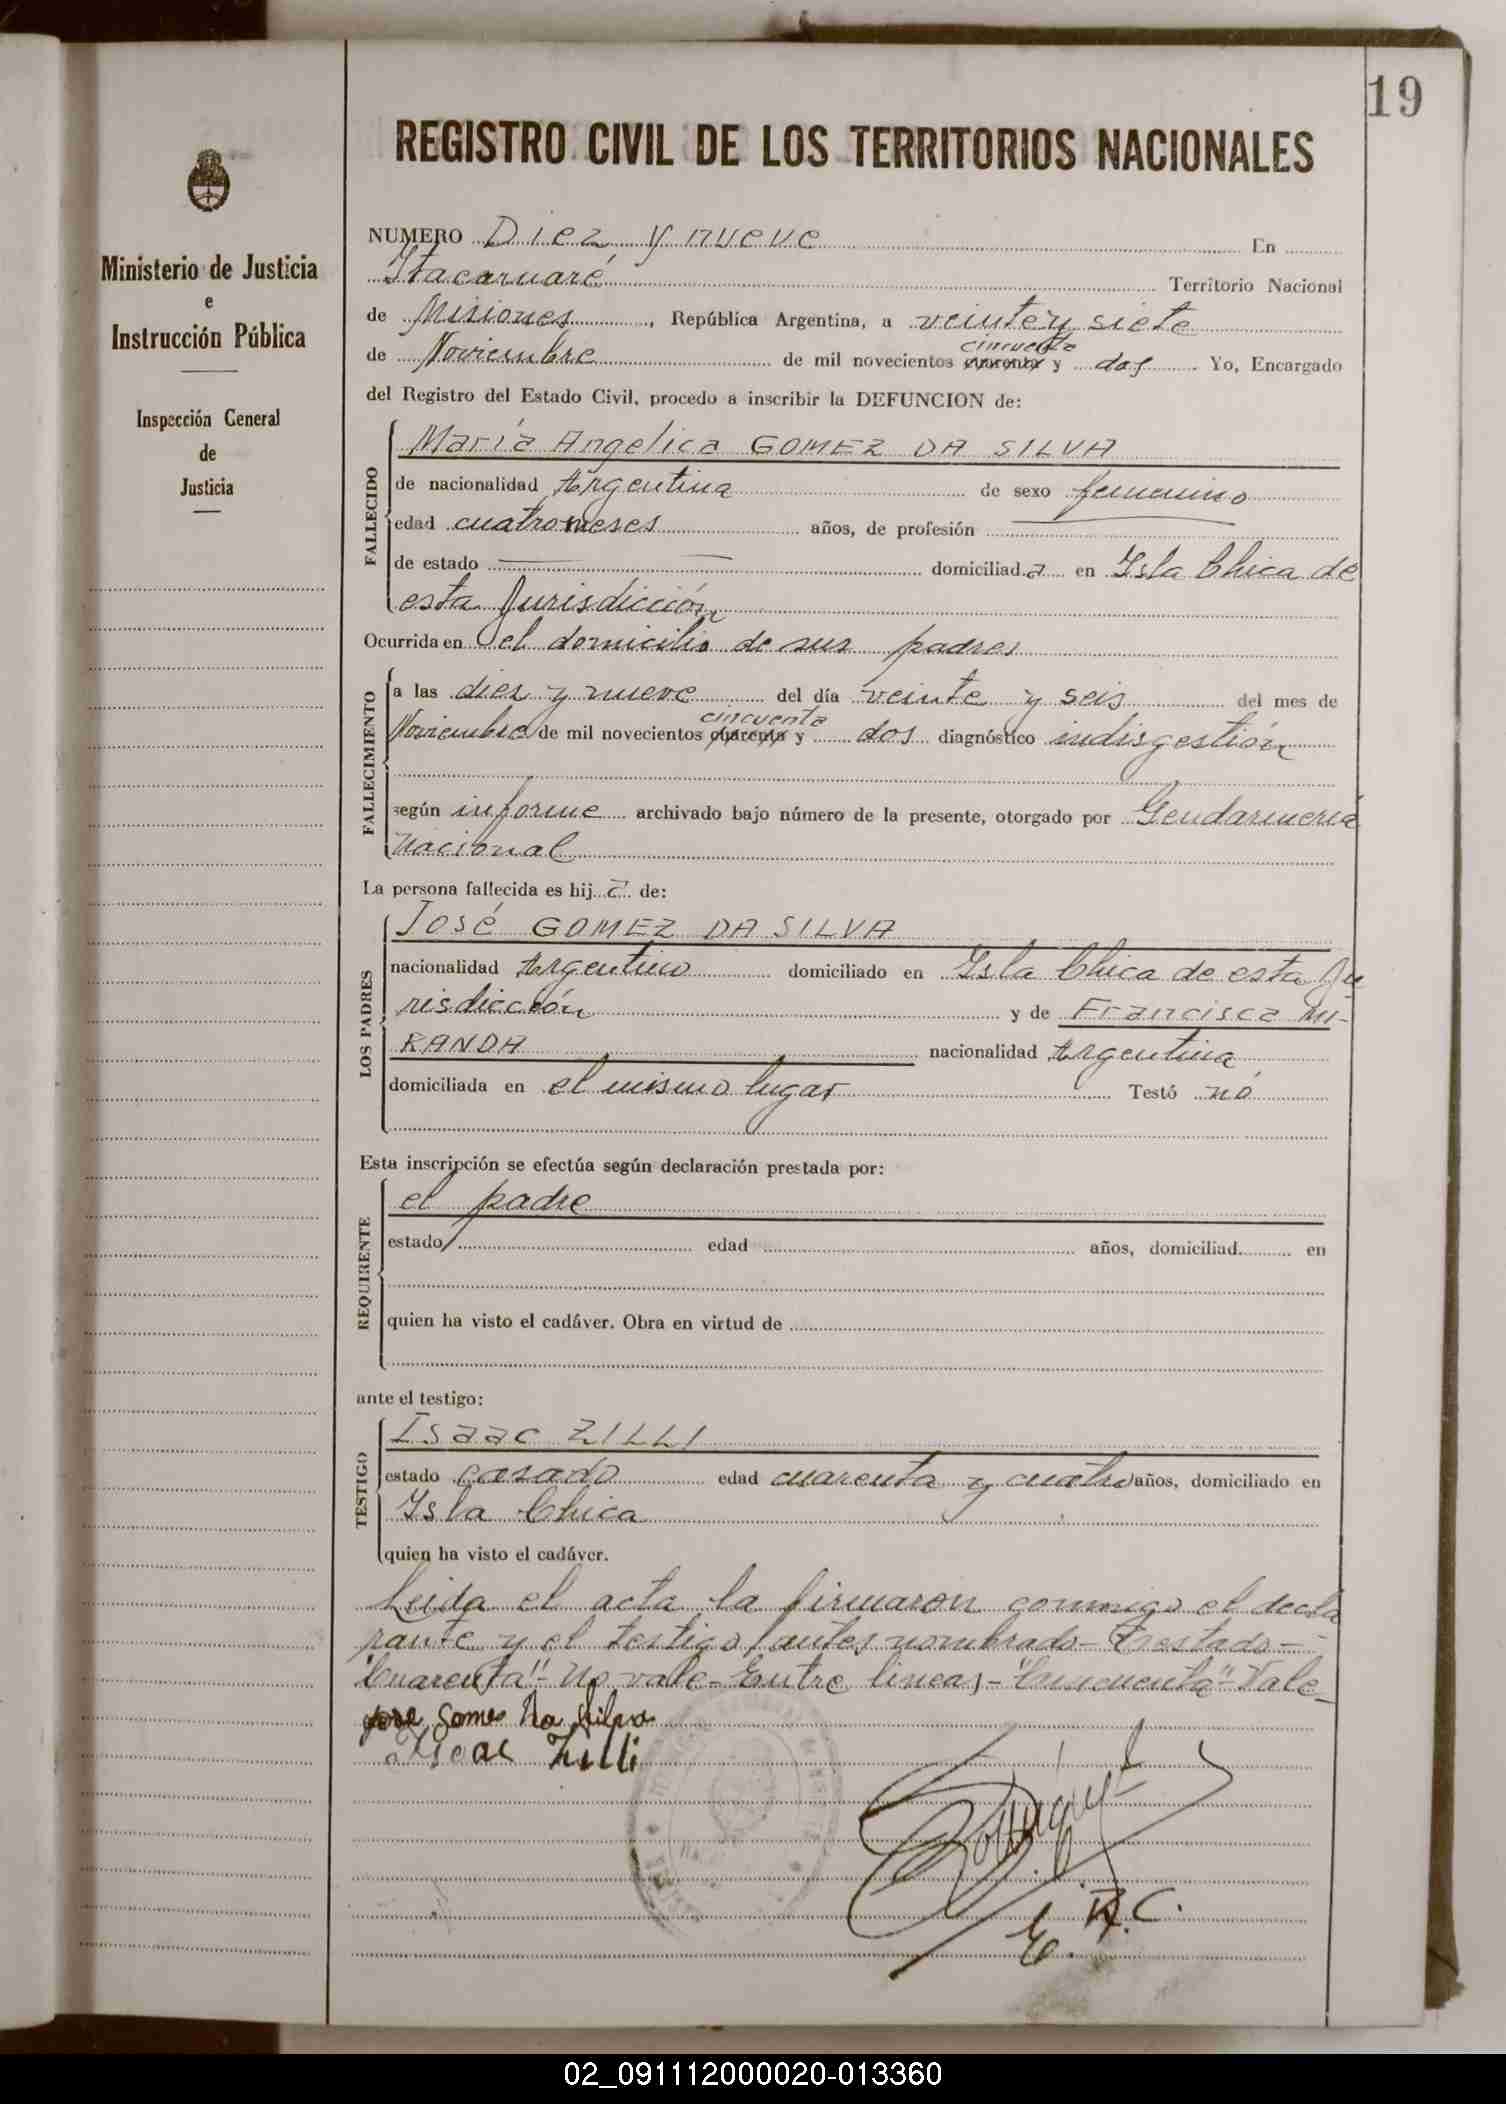 19
REGISTRO CIVIL DE LOS TERRITORIOS NACIONALES
Ministerio de Justicia
e
Instrucción Pública
Inspección General
de
Justicia
NUMERO Diez y nueve En
Itacaruaré Territorio Nacional
de Misiones, República Argentina, a veinte y siete
cincuenta
de Noviembre de mil novecientos cuarenta y dos Yo, Encargado
del Registro del Estado Civil, procedo a inscribir la DEFUNCION de:
FALLECIDO
María Angelica GOMEZ DA SILVA
de nacionalidad Argentina de sexo femenino
edad cuatro meses años, de profesión
de estado domiciliada en Isla Chica de
esta Jurisdicción
Ocurrida en el domicilio de sus padres
FALLECIMIENTO
a las diez y nueve del día veinte y seis del mes de
cincuenta
Noviembre de mil novecientos cuarenta y dos diagnóstico indisgestión
según informe archivado bajo número de la presente, otorgado por Gendarmería
Nacional
La persona fallecida es hija de:
LOS PADRES
José GOMEZ DA SILVA
nacionalidad Argentino domiciliado en Isla Chica de esta Ju
risdicción y de Francisca MI-
RANDA nacionalidad Argentina
domiciliada en el mismo lugar Testó nó
Esta inscripción se efectúa según declaración prestada por:
REQUIRENTE
el padre
estado edad años, domiciliad en
quien ha visto el cadáver. Obra en virtud de
ante el testigo:
TESTIGO
Isaac ZILLI
estado casado edad cuarenta y cuatro años, domiciliado en
Isla Chica
quien ha visto el cadáver.
Leida el acta la firmaron conmigo el decla
rante y el testigo antes nombrado- Trestado-
"Cuarenta"- No vale- Entre lineas- "Cincuenta"- Vale-
jose Gomes Da Silva
Isaac Zilli
E. R. C.
02_091112000020-013360